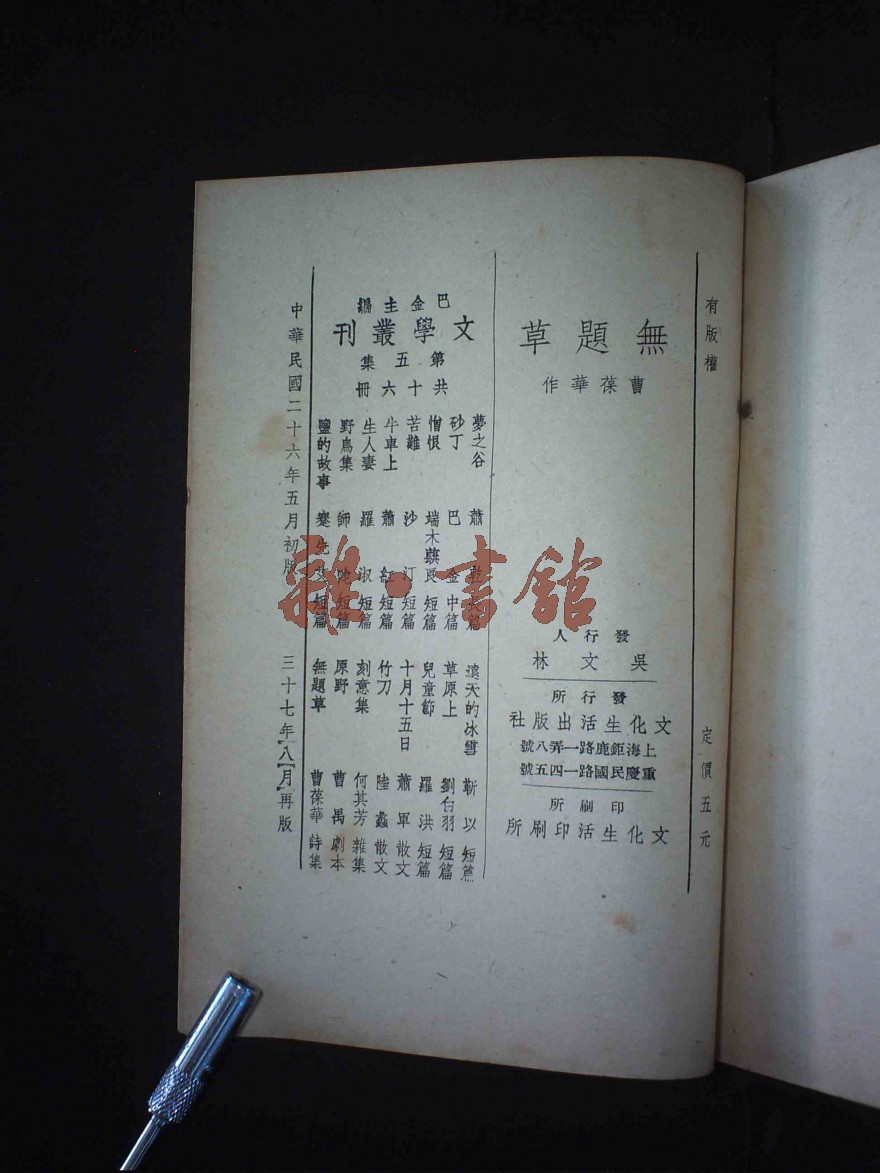 有版權
定價五元
無題草
曹葆華作
發行人
吳文林
發行所
文化生活出版社
上海鉅鹿路一弄八號
重慶民國路一四五號
印刷所
文化生活印刷所
巴金主編
文學叢刊
第五集
共十六冊
夢之谷 蕭乾 長篇
砂丁 巴金 中篇
憎恨 端木蕻良 短篇
苦難 沙汀 短篇
牛車上 蕭紅 短篇
生人妻 羅淑 短篇
野鳥集 師陀 短篇
鹽的故事 蹇先艾 短篇
遠天的冰雪 靳以 短篇
草原上 劉白羽 短篇
兒童節 羅洪 短篇
十月十五日 蕭軍 散文
竹刀 陸蠡 散文
刻意集 何其芳 雜集
原野 曹禺 劇本
無題草 曹葆華 詩集
中華民國二十六年五月初版
三十七年〔八〕月再版
雜·書館